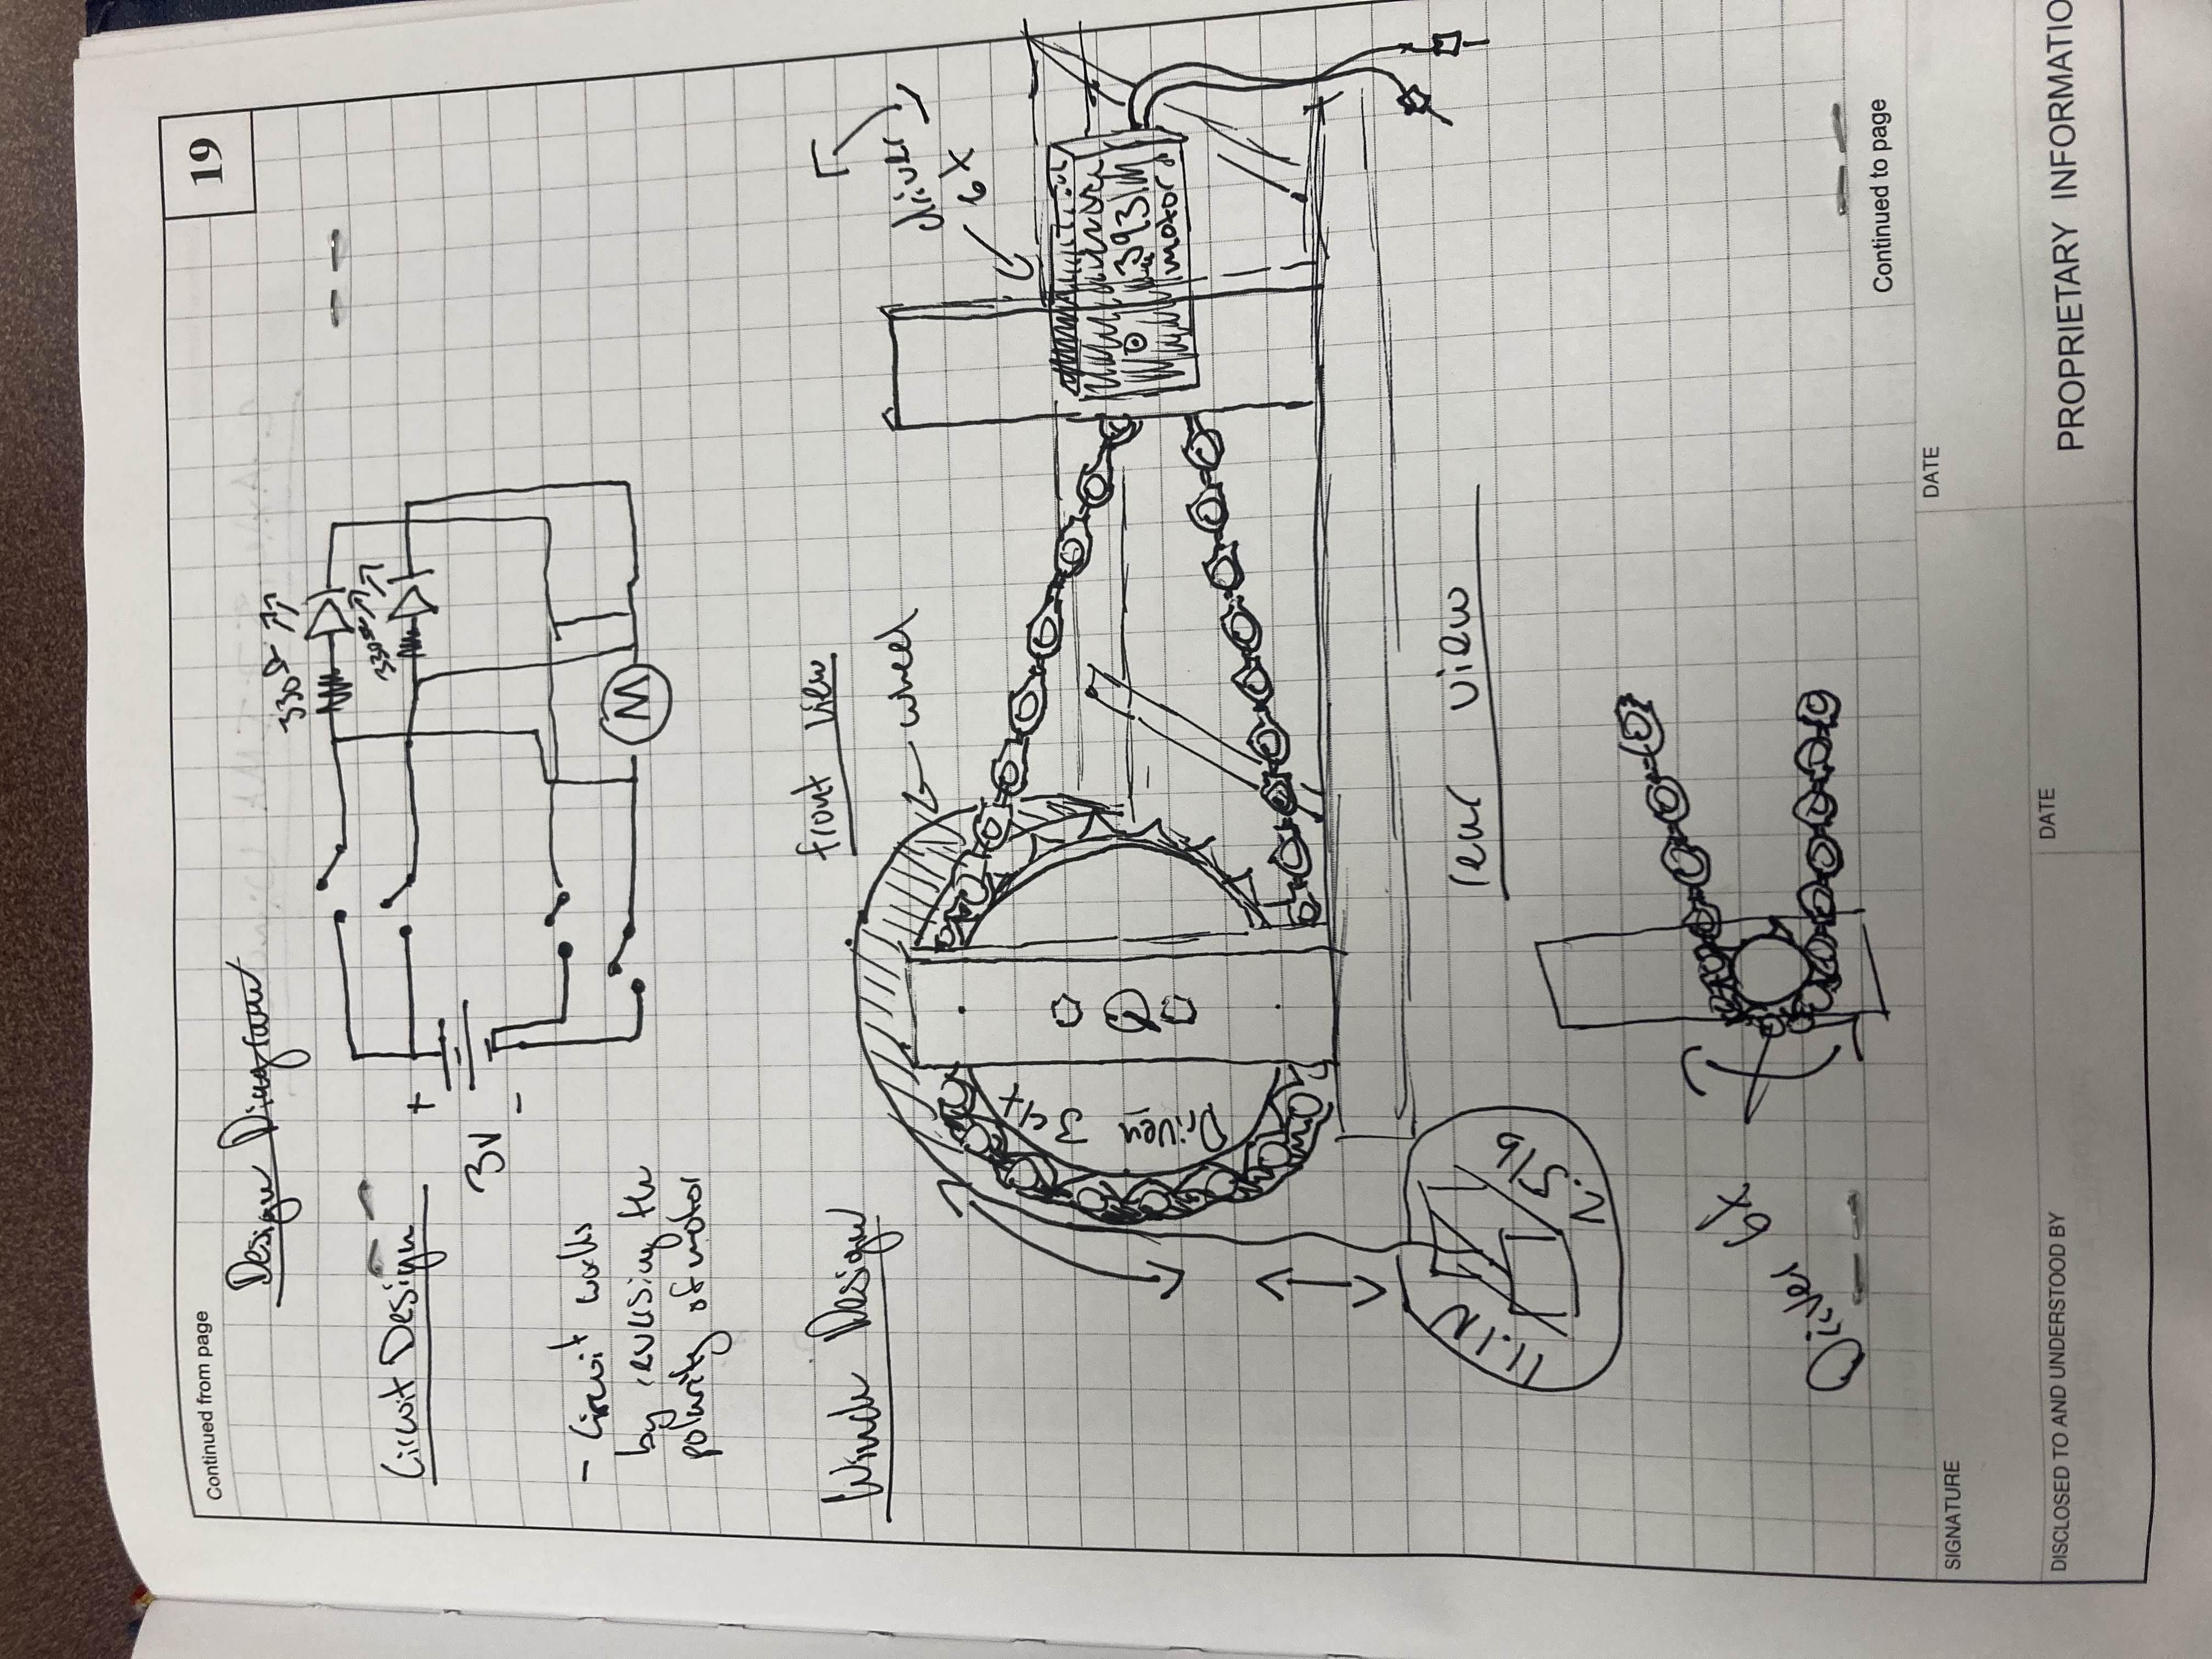 Continued from page
19
Design Diagram
330Ω
330Ω
Circuit Design
+
3V
-
- Circuit works
by reversing the
polarity of motor
M
front view
Winch Design
wheel
driver
6t
Driven 34t
393
motor
11.1N
2.5lb
rear view
Driver 6t
Continued to page
SIGNATURE
DATE
DISCLOSED TO AND UNDERSTOOD BY
DATE
PROPRIETARY INFORMATIO